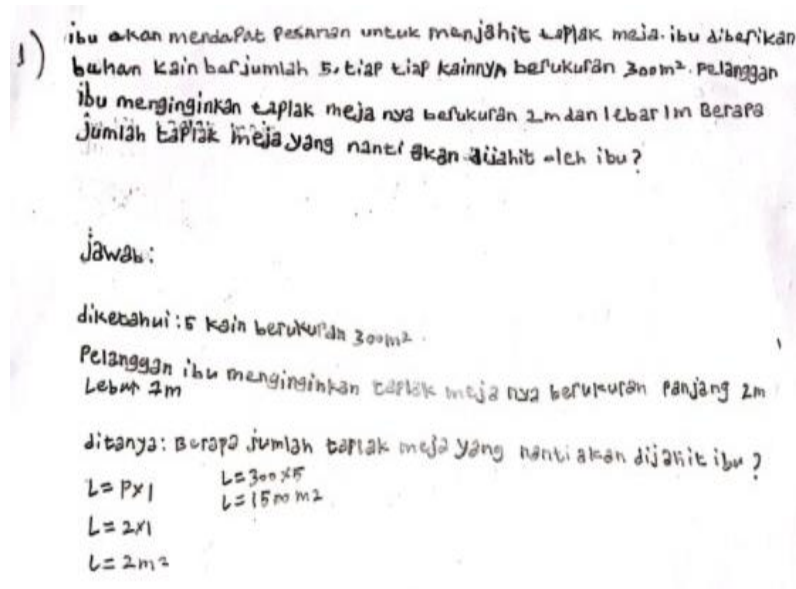 1) ibu akan mendapat pesanan untuk menjahit taplak meja. ibu diberikan
bahan kain berjumlah 5, tiap tiap kainnya berukuran 300m². Pelanggan
ibu menginginkan taplak meja nya berukuran 2m dan lebar 1m Berapa
jumlah taplak meja yang nanti akan dijahit oleh ibu?
jawab:
diketahui: 5 kain berukuran 300m².
Pelanggan ibu menginginkan taplak meja nya berukuran panjang 2m
Lebar 1m
ditanya: Berapa jumlah taplak meja yang nanti akan dijahit ibu?
L = P x l L = 300 x 5
L = 2 x 1 L = 1500 m2
L = 2m²